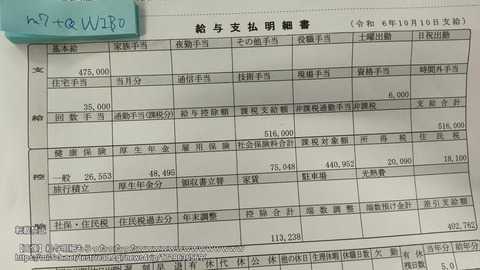 m7+αW2B0
給与支払明細書
(令和 6年10月10日支給)
基本給 家族手当 夜勤手当 その他手当 役職手当 土曜出勤 日祝出勤
475,000
支
住宅手当 当月分 通信手当 技術手当 現場手当 資格手当 時間外手当
35,000 6,000
給
回数手当 通勤手当(課税分) 給与控除額 課税支給額 非課税通勤手当 非課税 支給合計
516,000 516,000
健康保険 厚生年金 雇用保険 社会保険料合計 課税対象額 所得税 住民税
一般 26,553 48,495 75,048 440,952 20,090 18,100
控
旅行積立 厚生年金分 領収書立替 家賃 駐車場 光熱費
除
社保・住民税 住民税過去分 年末調整 控除合計 端数調整 端数預け金計 差引支給額
113,238 402,762
転載禁止
【画像】給与明細もらったったったwwwwwwwwwwwww
遅刻 早退 有休 代休 公休 他の休日 生理休暇 休職日数 欠勤 有休 当年分 前年分
5.0